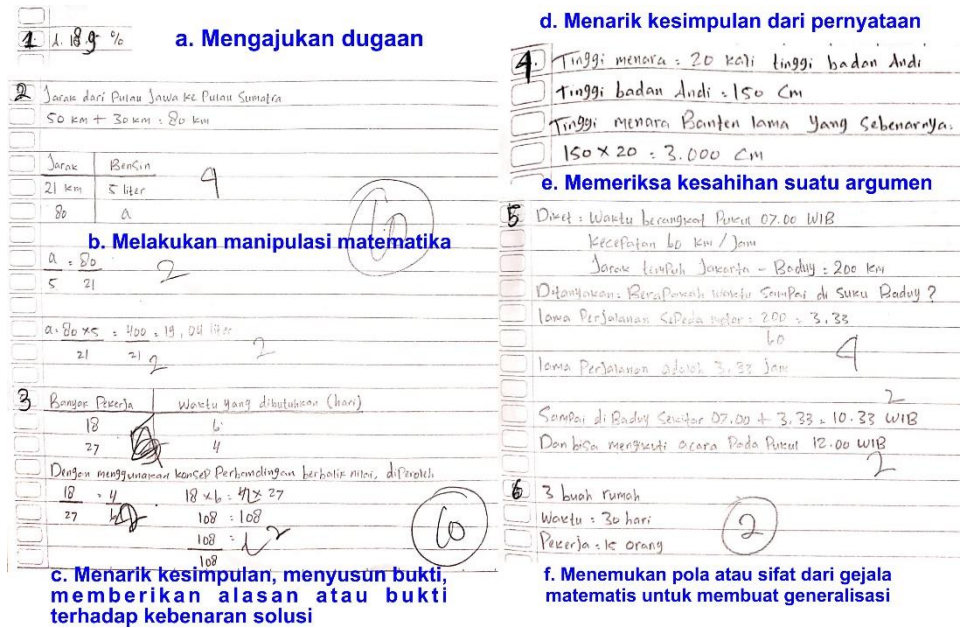 a. Mengajukan dugaan
1. 1. 18.9 %
2 Jarak dari Pulau Jawa ke Pulau Sumatra
50 km + 30 km = 80 km
Jarak Bensin
21 km 5 liter
80 a
4
60
b. Melakukan manipulasi matematika
a = 80
5 21
2
a = 80 x 5 = 400 = 19,04 liter
21 21
2 2
3 Banyak Pekerja Waktu yang dibutuhkan (hari)
18 6
27 4
Dengan menggunakan konsep Perbandingan berbalik nilai, diperoleh
18 = 4
27
18 x 6 = 4 x 27
108 = 108
108 = 1
108
2
c. Menarik kesimpulan, menyusun bukti,
memberikan alasan atau bukti
terhadap kebenaran solusi
d. Menarik kesimpulan dari pernyataan
4. Tinggi menara = 20 kali tinggi badan Andi
Tinggi badan Andi = 150 Cm
Tinggi menara Banten lama yang sebenarnya =
150 x 20 = 3.000 cm
e. Memeriksa kesahihan suatu argumen
5 Diket : Waktu berangkat Pukul 07.00 WIB
Kecepatan 60 km / Jam
Jarak tempuh Jakarta - Baduy = 200 km
Ditanyakan : Berapakah waktu Sampai di Suku Baduy ?
lama Perjalanan Sepeda motor = 200 = 3,33
60
4
lama Perjalanan adalah 3,33 Jam
2
Sampai di Baduy Sekitar 07.00 + 3,33 = 10.33 WIB
Dan bisa mengikuti acara Pada Pukul 12.00 WIB
2
6 3 buah rumah
Waktu : 30 hari
Pekerja : 15 orang
2
f. Menemukan pola atau sifat dari gejala
matematis untuk membuat generalisasi